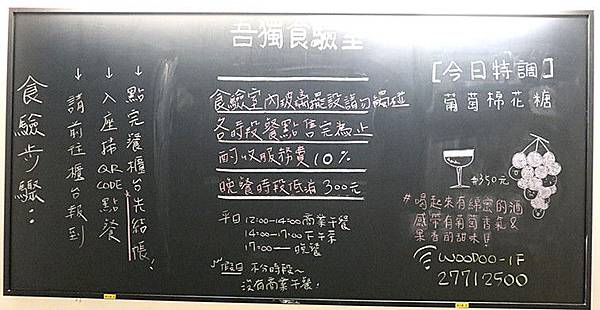 吾獨食驗室
食驗步驟:
↓請前往櫃台報到
↓入座掃QR CODE點餐
↓點完餐櫃台先結帳!
食驗室內玻璃擺設請勿觸碰
各時段餐點售完為止
酌收服務費10%
晚餐時段低消300元
平日 12:00-14:00商業午餐
14:00-17:00下午茶
17:00— 晚餐
假日 不分時段~
沒有商業午餐!
[今日特調]
葡萄棉花糖
#350元
#喝起來有綿密的酒
感帶有葡萄香氣&
果香的甜味!!
WOODOO-1F
27712500